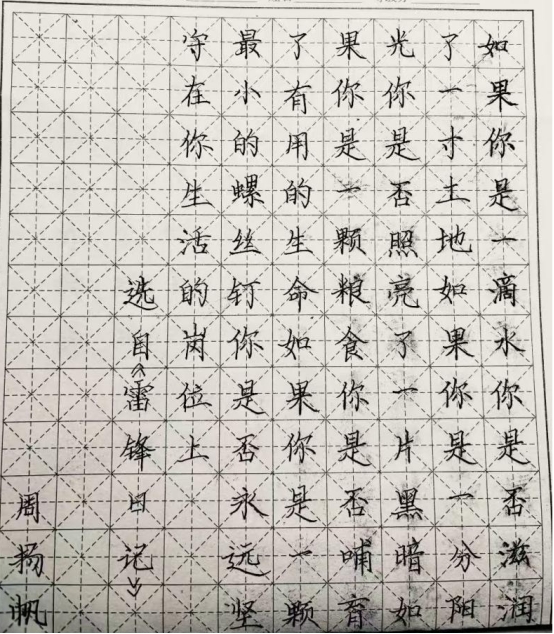 如果你是一滴水你是否滋润
了一寸土地如果你是一分阳
光你是否照亮了一片黑暗如
果你是一颗粮食你是否哺育
了有用的生命如果你是一颗
最小的螺丝钉你是否永远坚
守在你生活的岗位上
选自《雷锋日记》
周扬帆